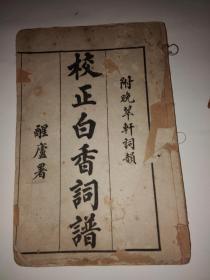 附晚翠軒詞韻
校正白香詞譜
醒廬署